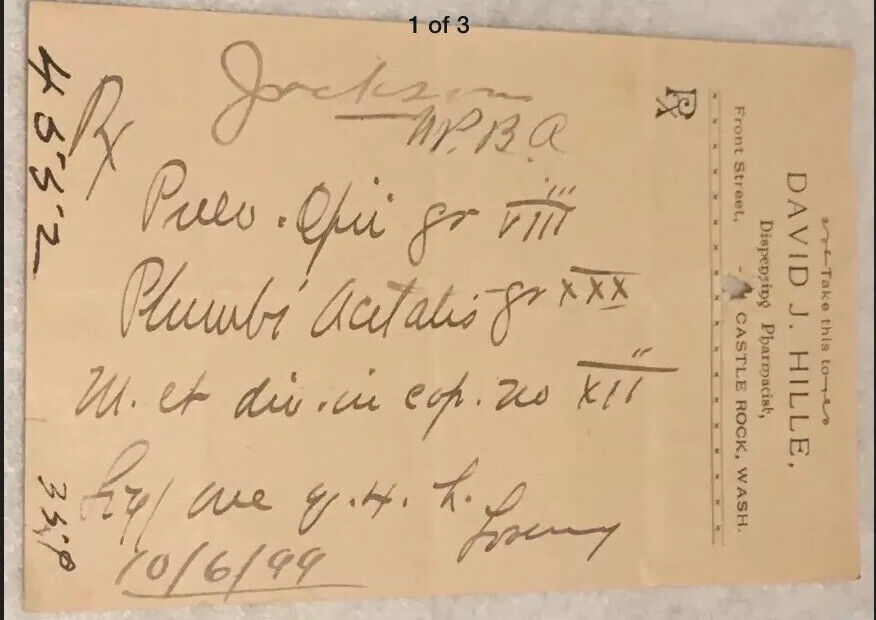 1 of 3
Take this to
DAVID J. HILLE,
Dispensing Pharmacist,
Front Street, CASTLE ROCK, WASH.
Rx
Jackson
Rx
Pulv. Opii gr VIII
Plumbi Acetatis gr XXX
M. et div. in cap. no XII
Sig/ one q. 4. h.
10/6/99
45552
35¢